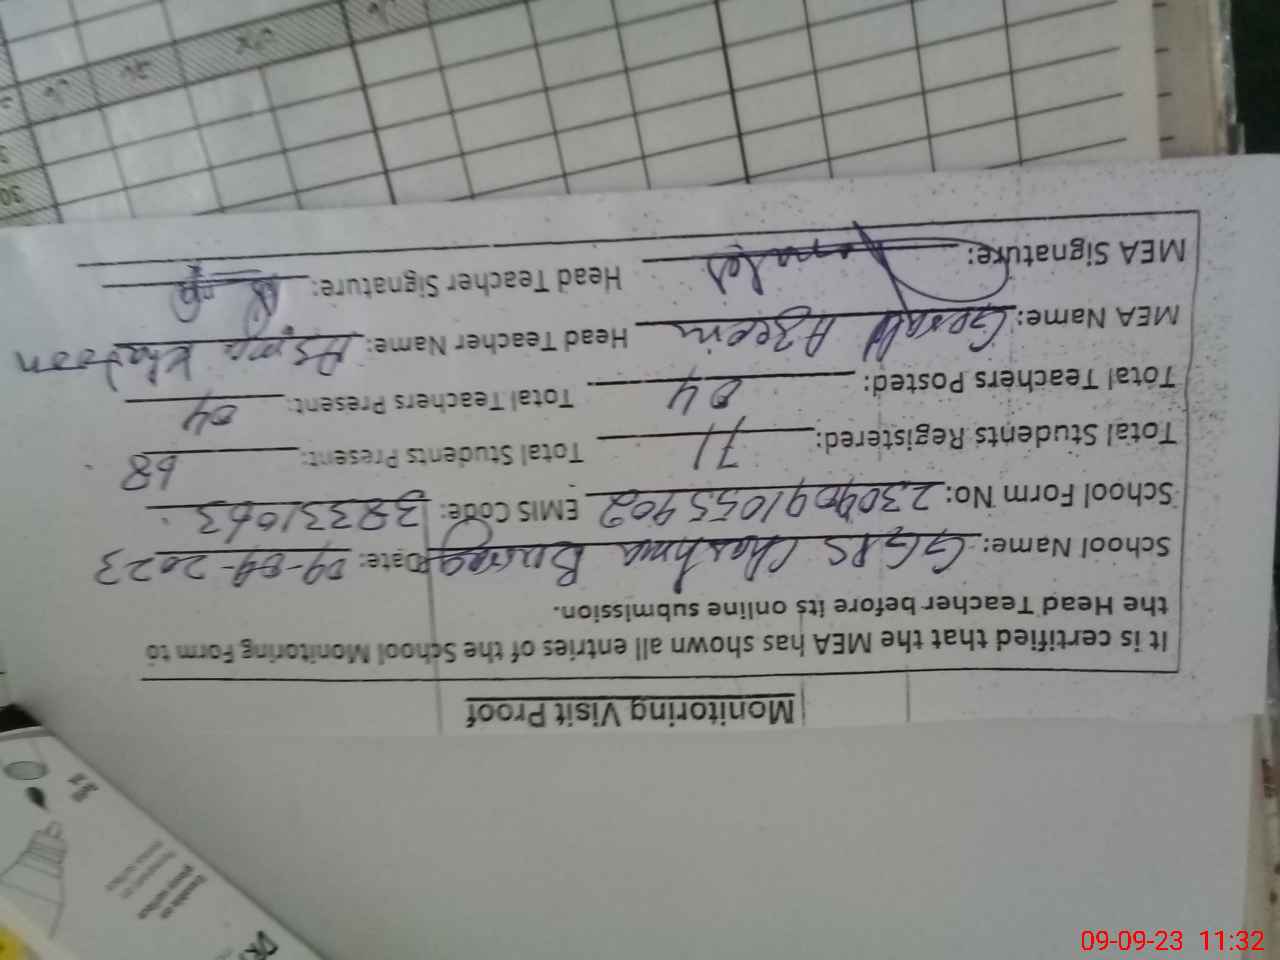 Monitoring Visit Proof
It is certified that the MEA has shown all entries of the School Monitoring Form to
the Head Teacher before its online submission.
School Name: GGPS Chashma Date: 09-09-2023
School Form No: EMIS Code: 38331063
Total Students Registered: 71 Total Students Present: 68
Total Teachers Posted: 04 Total Teachers Present: 04
MEA Name: Head Teacher Name: Asma Khatoon
MEA Signature: Head Teacher Signature:
30
09-09-23 11:32